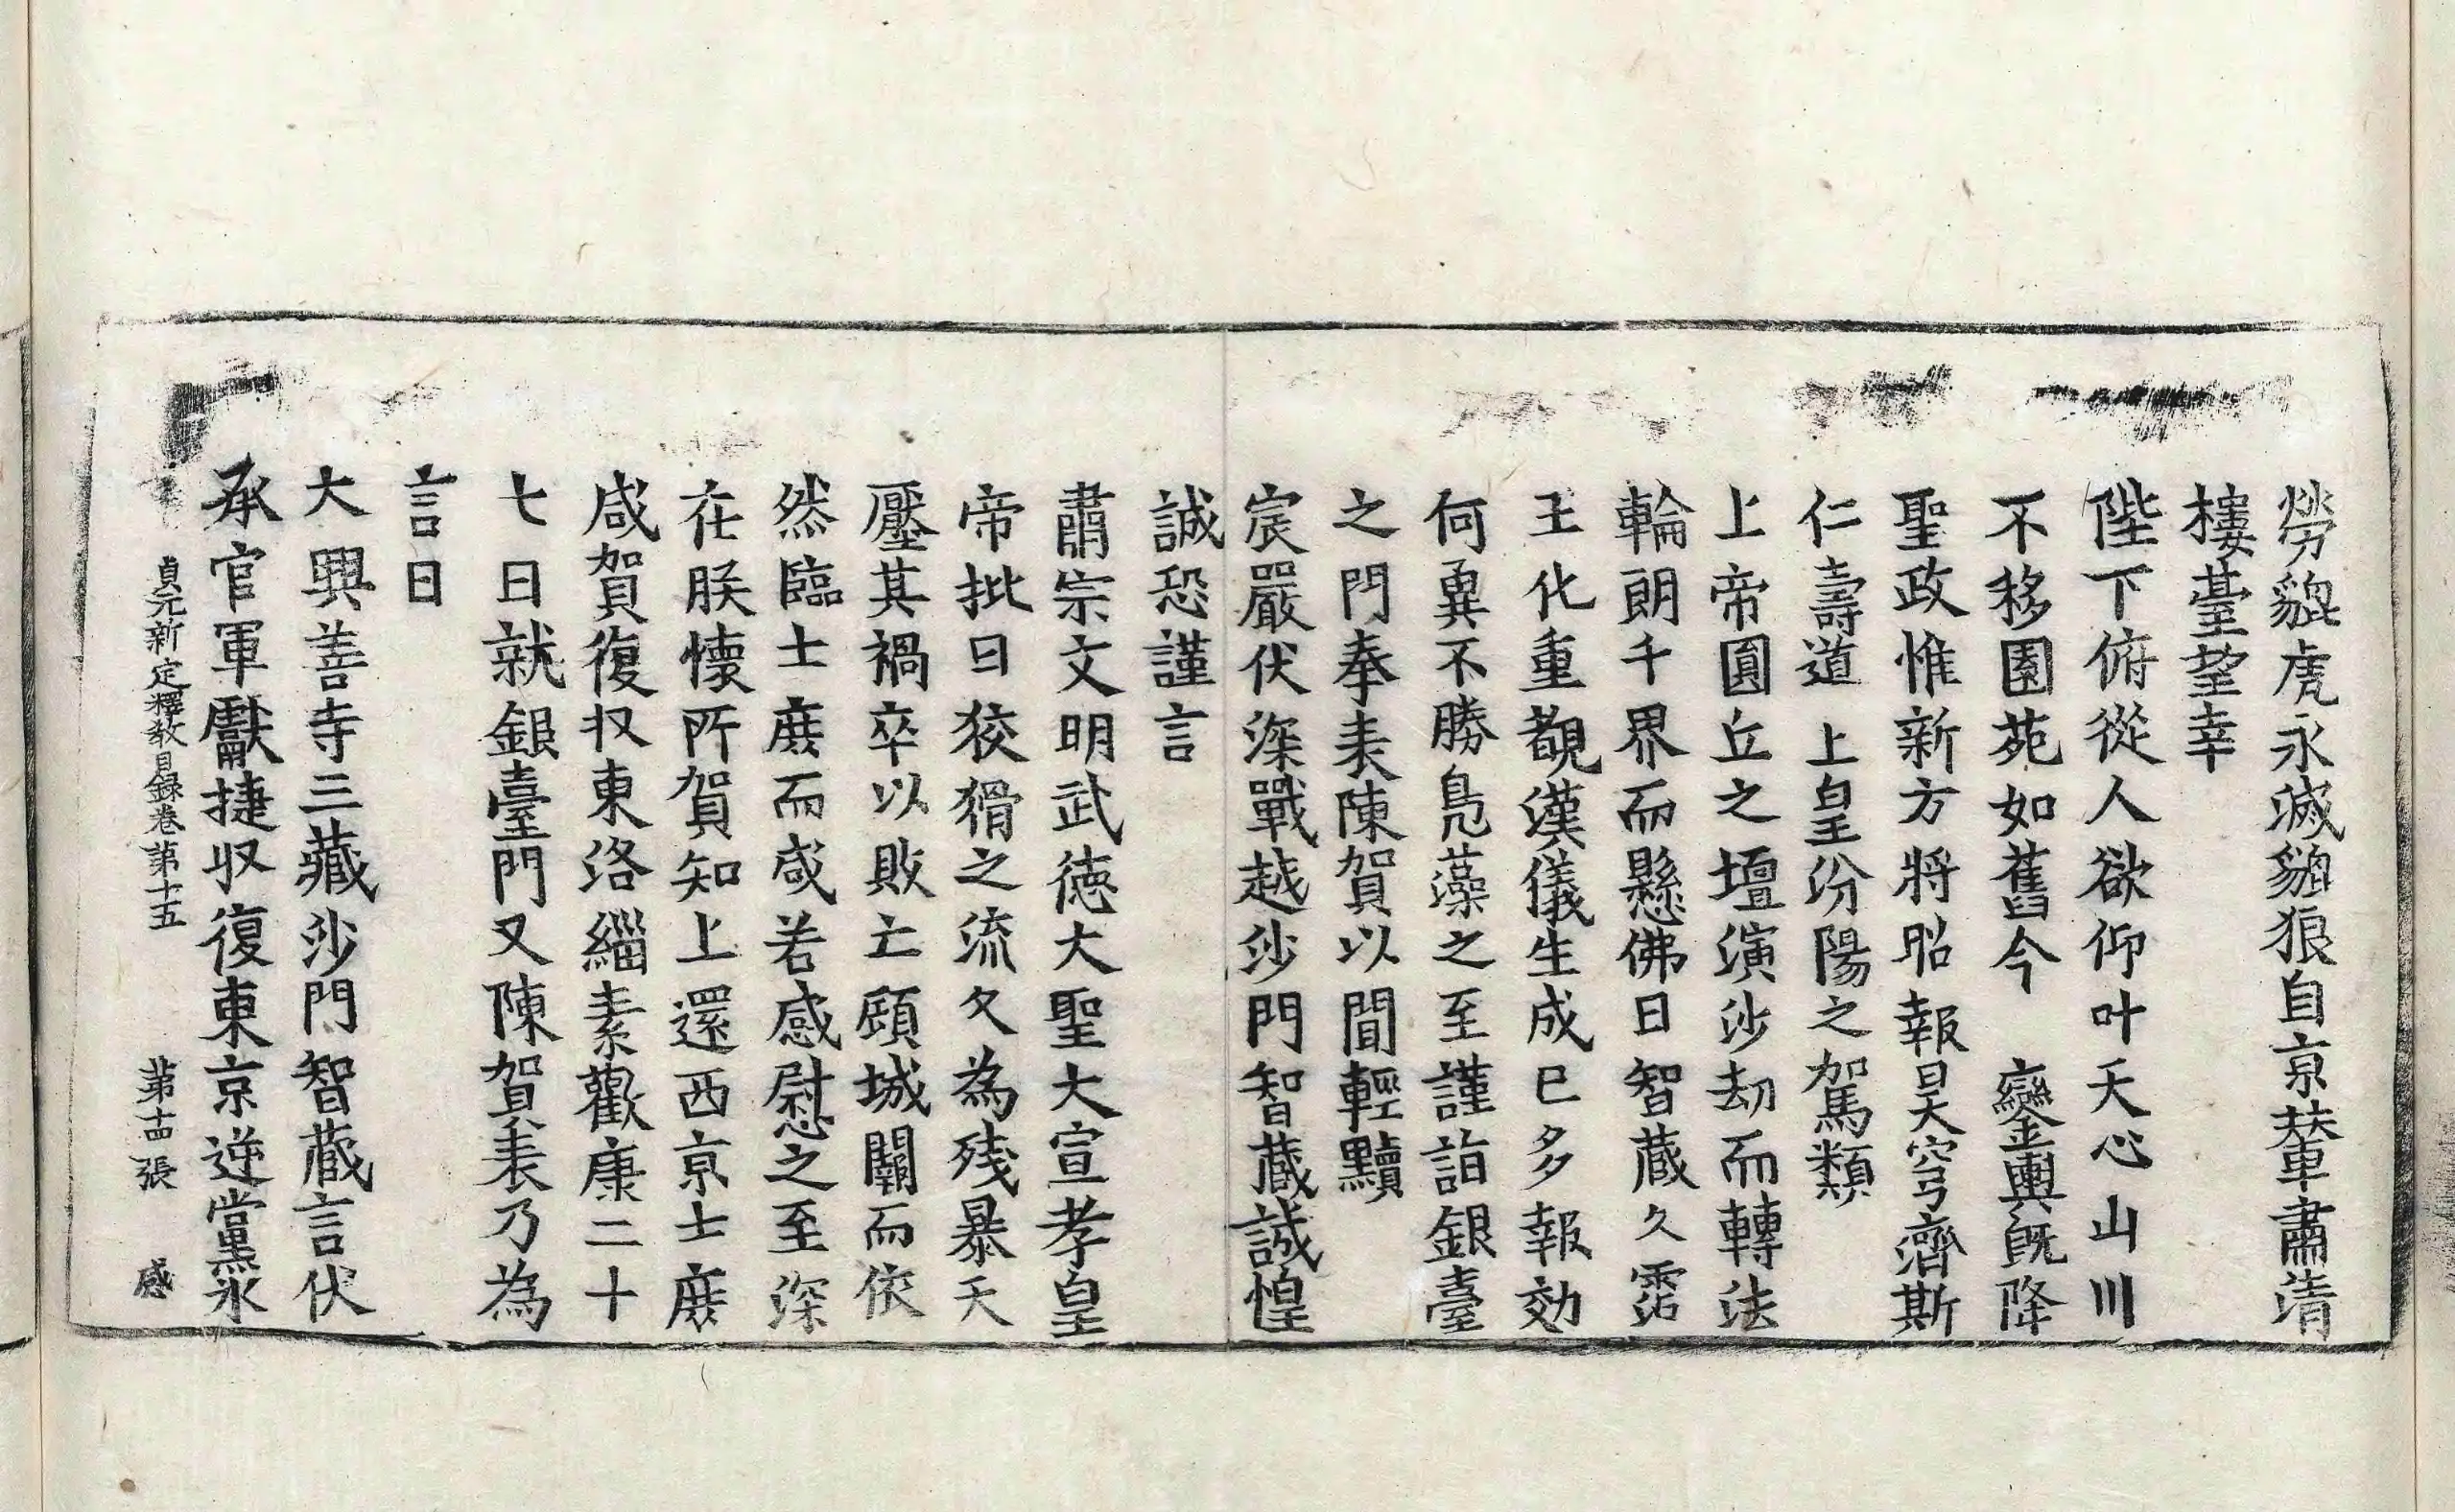 勞貔虎永滅豺狼自京輦肅清
樓臺望幸
陛下俯從人欲仰叶天心山川
不移園苑如舊今　鑾輿既降
聖政惟新方將昭報昊穹濟斯
仁壽道　上皇汾陽之駕類
上帝圓丘之壇演沙劫而轉法
輪朗千界而懸佛日智蔵久霑
王化重覩漢儀生成已多報効
何冀不勝鳧藻之至謹詣銀臺
之門奉表陳賀以聞輕黷
宸嚴伏深戰越沙門智蔵誠惶
誠恐謹言
肅宗文明武徳大聖大宣孝皇
帝批曰狡猾之流久為残暴天
壓其禍卒以敗亡頋城闕而依
然臨士庻而咸若感慰之至深
在朕懷所賀知上還西京士庻
咸賀復収東洛緇素歡康二十
七日就銀臺門又陳賀表乃為
言曰
大興善寺三藏沙門智蔵言伏
承官軍獻捷収復東京逆黨氷
貞元新定釋教目録卷第十五　第十四張　感